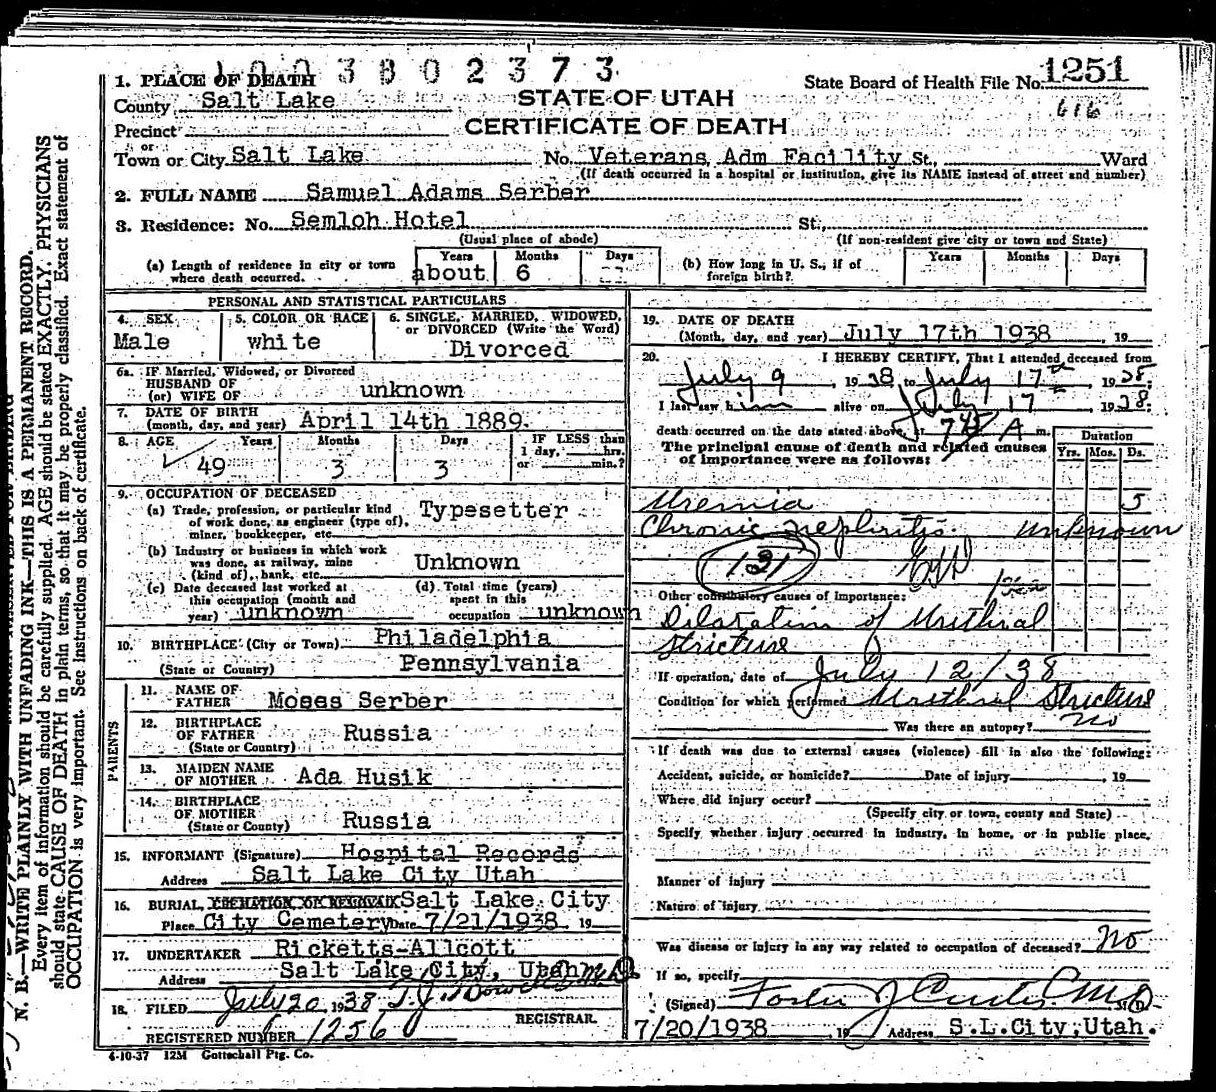 1003802373
State Board of Health File No. 1251
616
1. PLACE OF DEATH
County Salt Lake
STATE OF UTAH
CERTIFICATE OF DEATH
Precinct
or
Town or City Salt Lake No. Veterans Adm Facility St., Ward
(If death occurred in a hospital or institution, give its NAME instead of street and number)
2. FULL NAME Samuel Adams Serber
3. Residence: No. Semloh Hotel St.
(Usual place of abode) (If non-resident give city or town and State)
(a) Length of residence in city or town where death occurred. Years about Months 6 Days --
(b) How long in U. S., if of foreign birth? Years Months Days
PERSONAL AND STATISTICAL PARTICULARS
4. SEX Male
5. COLOR OR RACE white
6. SINGLE, MARRIED, WIDOWED, or DIVORCED (Write the Word) Divorced
6a. IF Married, Widowed, or Divorced
HUSBAND OF
(or) WIFE OF unknown
7. DATE OF BIRTH
(month, day, and year) April 14th 1889.
8. AGE Years Months Days IF LESS than
1 day, hrs.
or min.?
49 3 3
9. OCCUPATION OF DECEASED
(a) Trade, profession, or particular kind of work done, as engineer (type of), miner, bookkeeper, etc. Typesetter
(b) Industry or business in which work was done, as railway, mine (kind of), bank, etc. Unknown
(c) Date deceased last worked at this occupation (month and year) unknown
(d) Total time (years) spent in this occupation unknown
10. BIRTHPLACE (City or Town) Philadelphia
(State or Country) Pennsylvania
PARENTS
11. NAME OF FATHER Moses Serber
12. BIRTHPLACE OF FATHER
(State or Country) Russia
13. MAIDEN NAME OF MOTHER Ada Husik
14. BIRTHPLACE OF MOTHER
(State or County) Russia
15. INFORMANT (Signature) Hospital Records
Address Salt Lake City Utah
16. BURIAL, CREMATION OR REMOVAL Salt Lake City
Place City Cemetery Date 7/21/1938 19
17. UNDERTAKER Ricketts-Allcott
Address Salt Lake City, Utah
18. FILED July 20 1938 M.D.
REGISTRAR.
REGISTERED NUMBER 1256
4-10-37 12M Gottschall Ptg. Co.
19. DATE OF DEATH
(Month, day, and year) July 17th 1938, 19
20. I HEREBY CERTIFY, That I attended deceased from
July 9, 1938, to July 17th, 1938.
I last saw him alive on July 17 1938.
death occurred on the date stated above, at 745 A m.
The principal cause of death and related causes of importance were as follows:
Duration
Yrs. Mos. Ds.
Uremia 5
Chronic nephritis. unknown
131
Other contributory causes of importance:
Dilatation of Urethral
stricture
If operation, date of July 12/38
Condition for which performed Urethral Stricture
Was there an autopsy? no
If death was due to external causes (violence) fill in also the following:
Accident, suicide, or homicide? Date of injury , 19
Where did injury occur?
(Specify city or town, county and State)
Specify whether injury occurred in industry, in home, or in public place.
Manner of injury
Nature of injury
Was disease or injury in any way related to occupation of deceased? No
If so, specify
(Signed) Foster J Curtis M.D.
7/20/1938 19 Address S.L.City, Utah.
N. B.—WRITE PLAINLY WITH UNFADING INK—THIS IS A PERMANENT RECORD.
Every item of information should be carefully supplied. AGE should be stated EXACTLY. PHYSICIANS
should state CAUSE OF DEATH in plain terms, so that it may be properly classified. Exact statement of
OCCUPATION is very important. See instructions on back of certificate.